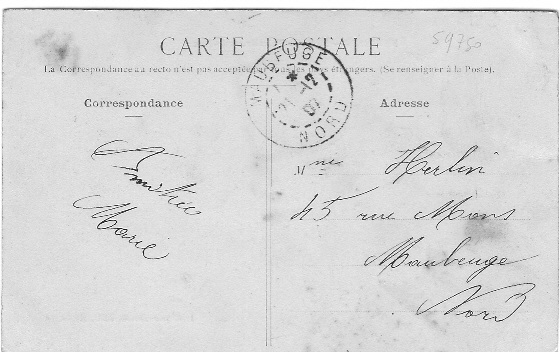 59750
CARTE POSTALE
La Correspondance au recto n'est pas acceptée par tous les pays étrangers. (Se renseigner à la Poste).
MAUBEUGE
21 - 12
NORD
Correspondance
Adresse
Amitiés
Marie
Mme Herlin
45 rue Mons
Maubeuge
Nord